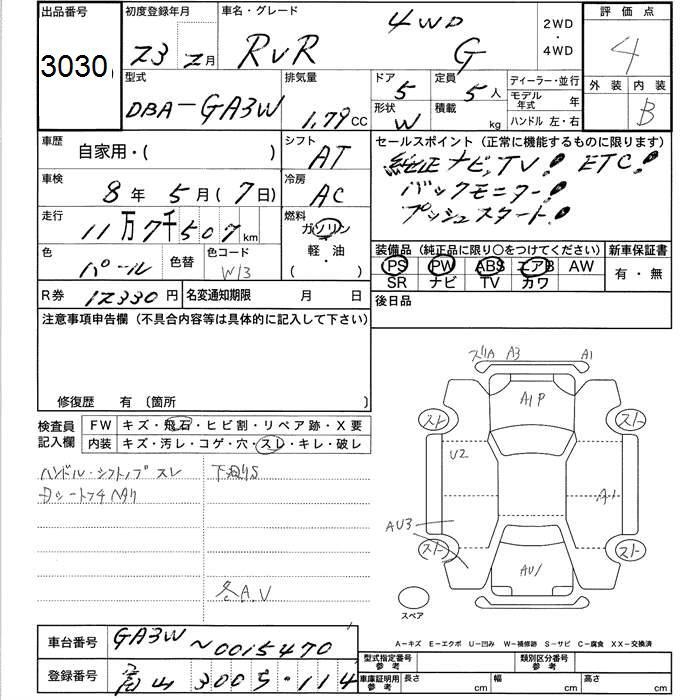 出品番号 初度登録年月 車名・グレード 4WD 2WD・4WD 評価点
3030 23年2月 RVR G 4
型式 排気量 ドア 5 定員 5人 ディーラー・並行 外装 内装
DBA-GA3W 1.79CC 形状 W 積載 kg モデル年式 年 B
ハンドル 左・右
車歴 自家用・( ) シフト AT セールスポイント(正常に機能するものに限ります)
車検 8年5月(7日) 冷房 AC 純正ナビ,TV! ETC!
バックモニター!
走行 11万7千507km 燃料 ガソリン プッシュスタート!
色 パール 色替 色コード W13 軽・油 ( )
装備品(純正品に限り○をつけてください) 新車保証書
PS PW ABS エアB AW 有・無
SR ナビ TV カワ
R券 12330円 名変通知期限 月 日 後日品
注意事項申告欄(不具合内容等は具体的に記入して下さい)
修復歴 有(箇所 )
検査員記入欄 FW キズ・飛石・ヒビ割・リペア跡・X要
内装 キズ・汚レ・コゲ・穴・スレ・キレ・破レ
ハンドル・シフトノブ スレ 下廻りS
各A.V
ズリA A3 A1
A1P
スト スト
U2
A1
AU3
スト スト
AU1
スペア
A-キズ E-エクボ U-凹み W-補修跡 S-サビ C-腐食 XX-交換済
車台番号 GA3W~0015470
型式指定番号参考 類別区分番号参考
登録番号 富山 300 5 ・114
車庫証明用参考 長さ cm 幅 cm 高さ cm